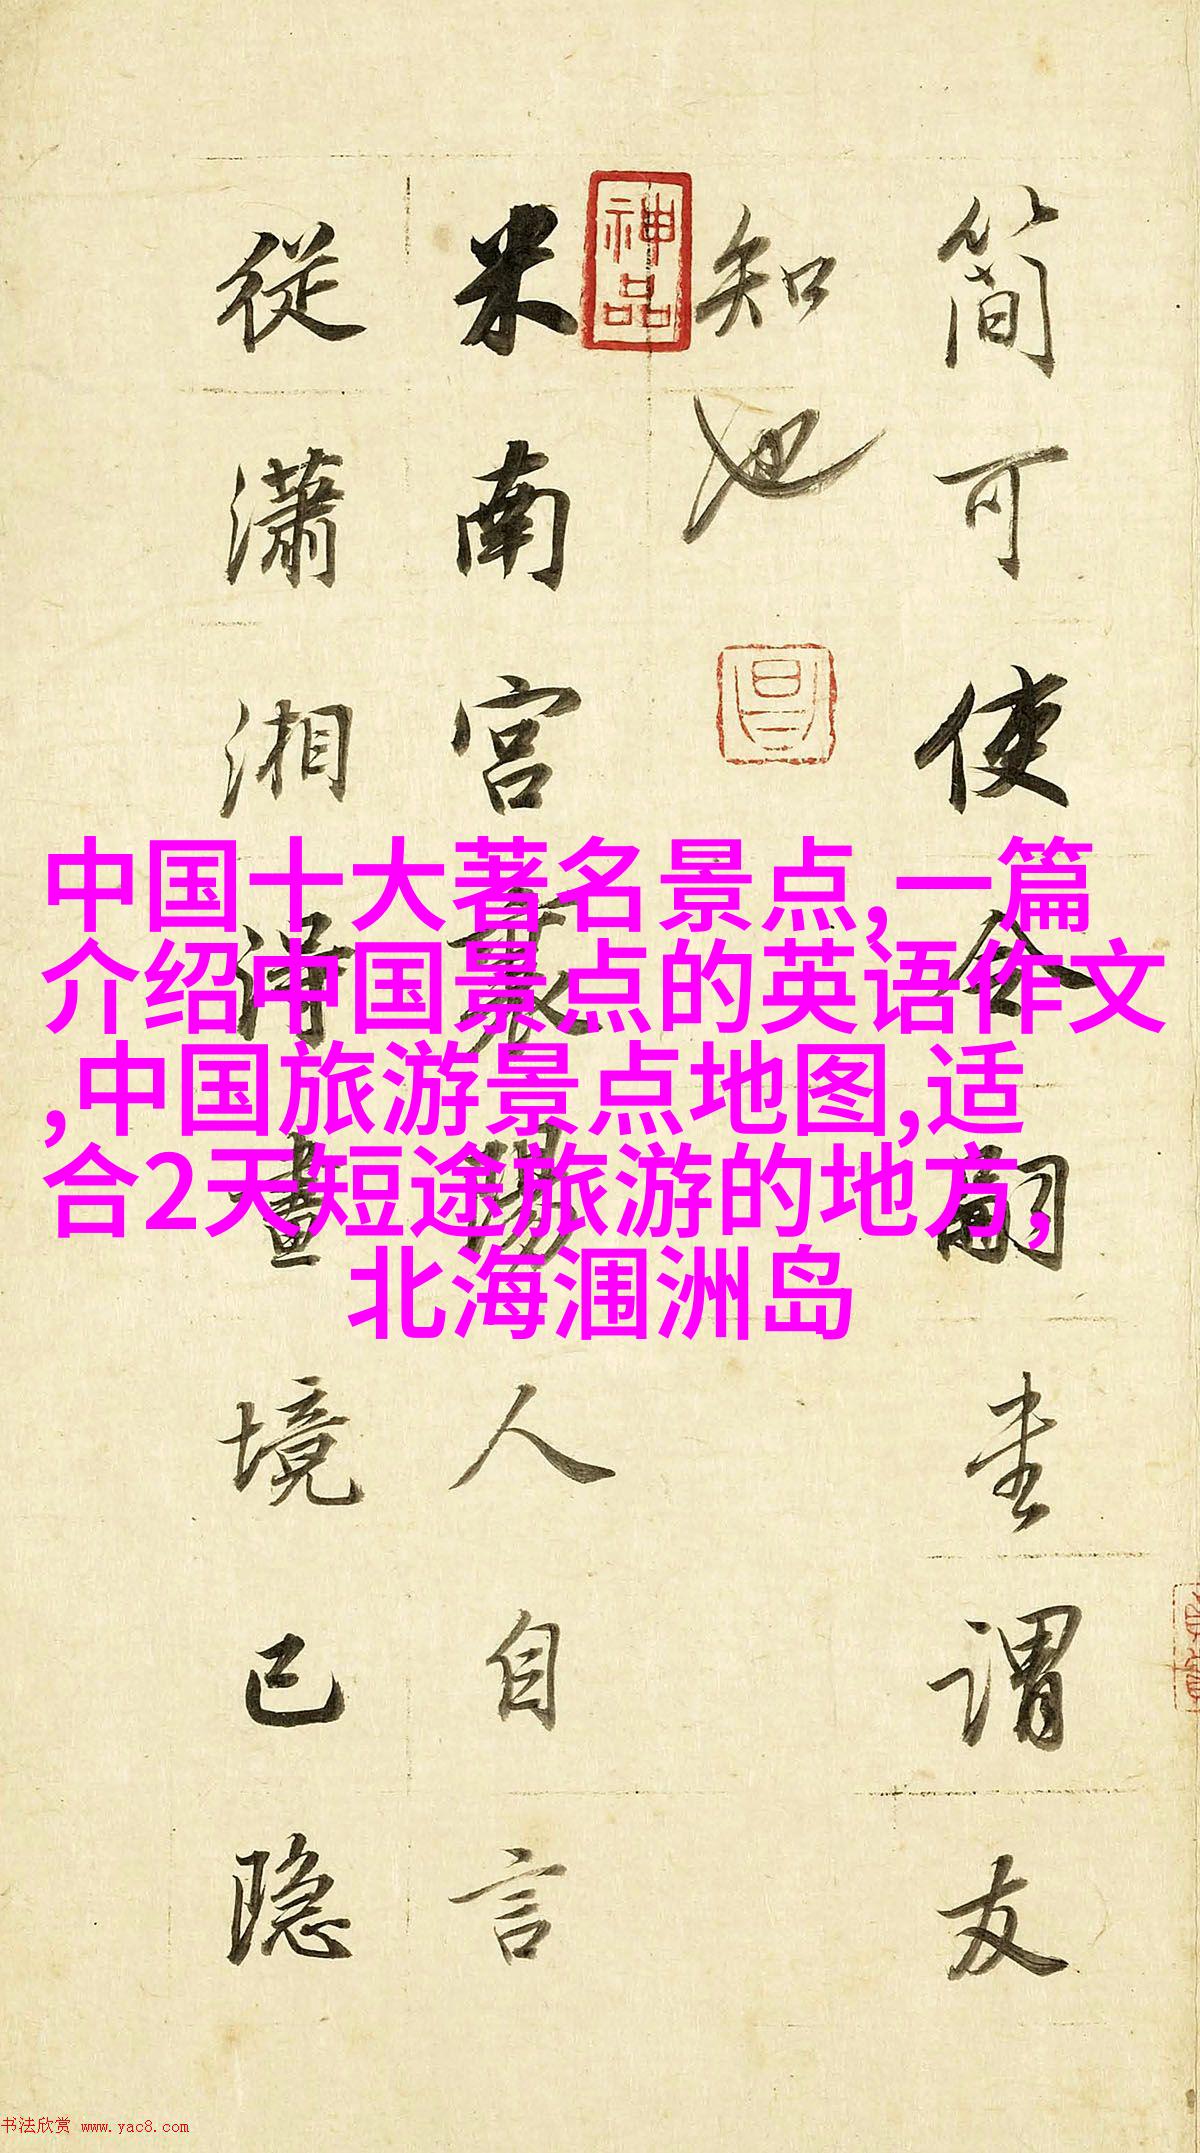 简可使令嗣圭谓友
知也
神品
米南宫襄阳人自言
從瀟湘得畫境已隐
中国十大著名景点,一篇
介绍中国景点的英语作文
,中国旅游景点地图,适
合2天短途旅游的地方,
北海涠洲岛
书法欣赏 www.yac8.com